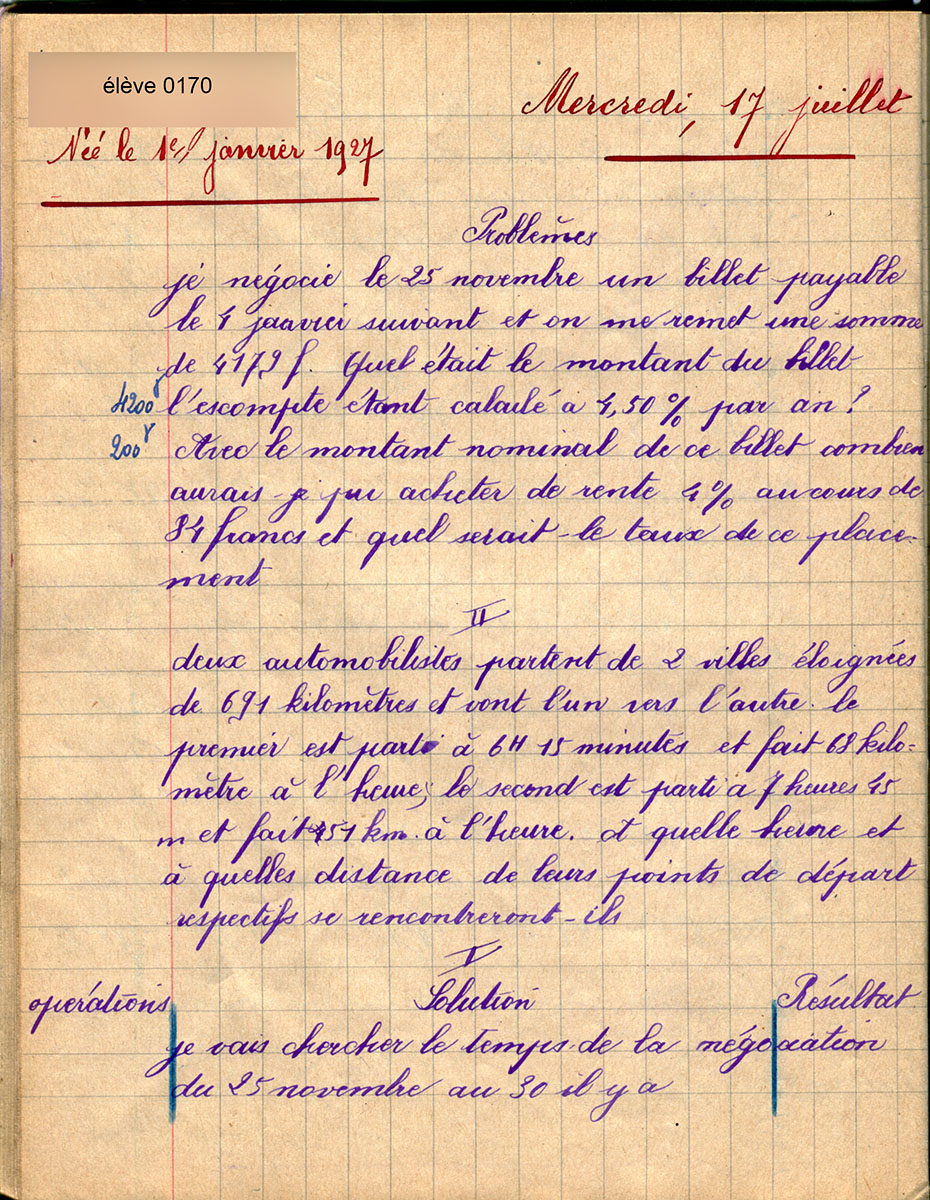 élève 0170
Mercredi, 17 juillet
Née le 1er janvier 1927
Problèmes
je négocie le 25 novembre un billet payable
le 4 jaavier suivant et on me remet une somme
de 4179 f. Quel était le montant du billet
4200f l'escompte étant calculé à 4,50 % par an ?
200f Avec le montant nominal de ce billet combien
aurais-je pu acheter de rente 4% au cours de
84 francs et quel serait-le taux de ce place-
ment
II
deux automobilistes partent de 2 villes éloignées
de 691 kilomètres et vont l'un vers l'autre. le
premier est parti à 6H 15 minutes et fait 68 kilo-
mètre à l'heure, le second est parti à 7 heures 45
m et fait 51 km. à l'heure. A quelle heure et
à quelles distance de leurs points de départ
respectifs se rencontreront-ils
I
opérations Solution Résultat
je vais chercher le temps de la négociation
du 25 novembre au 30 il y a